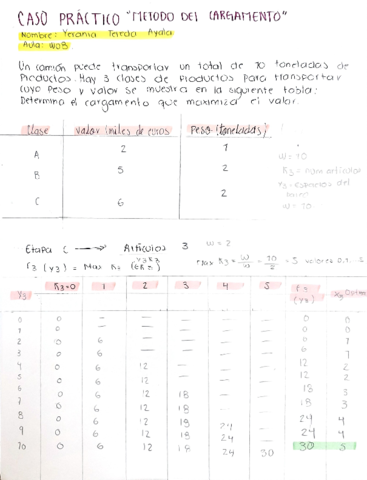 CASO PRÁCTICO "METODO DEL CARGAMENTO"
Nombre: Yerania Tereda Ayala
Aula: W0B
Un camión puede transportar un total de 10 toneladas de
Productos. Hay 3 clases de Productos para transportar
cuyo peso y valor se muestra en la siguiente tabla:
Determina el cargamento que maximiza el valor.
Clase Valor (miles de euros) Peso (toneladas)
A 2 1
B 5 2
C 6 2
W = 10
K3 = num articulos
W = 10
Etapa C → Artículos 3 W = 2
Max K3 = W/w = 10/2 = 5 valores 0,1...5
Y3 K3=0 1 2 3 4 5
0 0 — — — — — 0 0
1 0 — — — — — 0 0
2 0 6 — — — — 6 1
3 0 6 — — — — 6 1
4 0 6 12 — — — 12 2
5 0 6 12 — — — 12 2
6 0 6 12 18 — — 18 3
7 0 6 12 18 — — 18 3
8 0 6 12 18 24 — 24 4
9 0 6 12 18 24 — 24 4
10 0 6 12 18 24 30 30 5